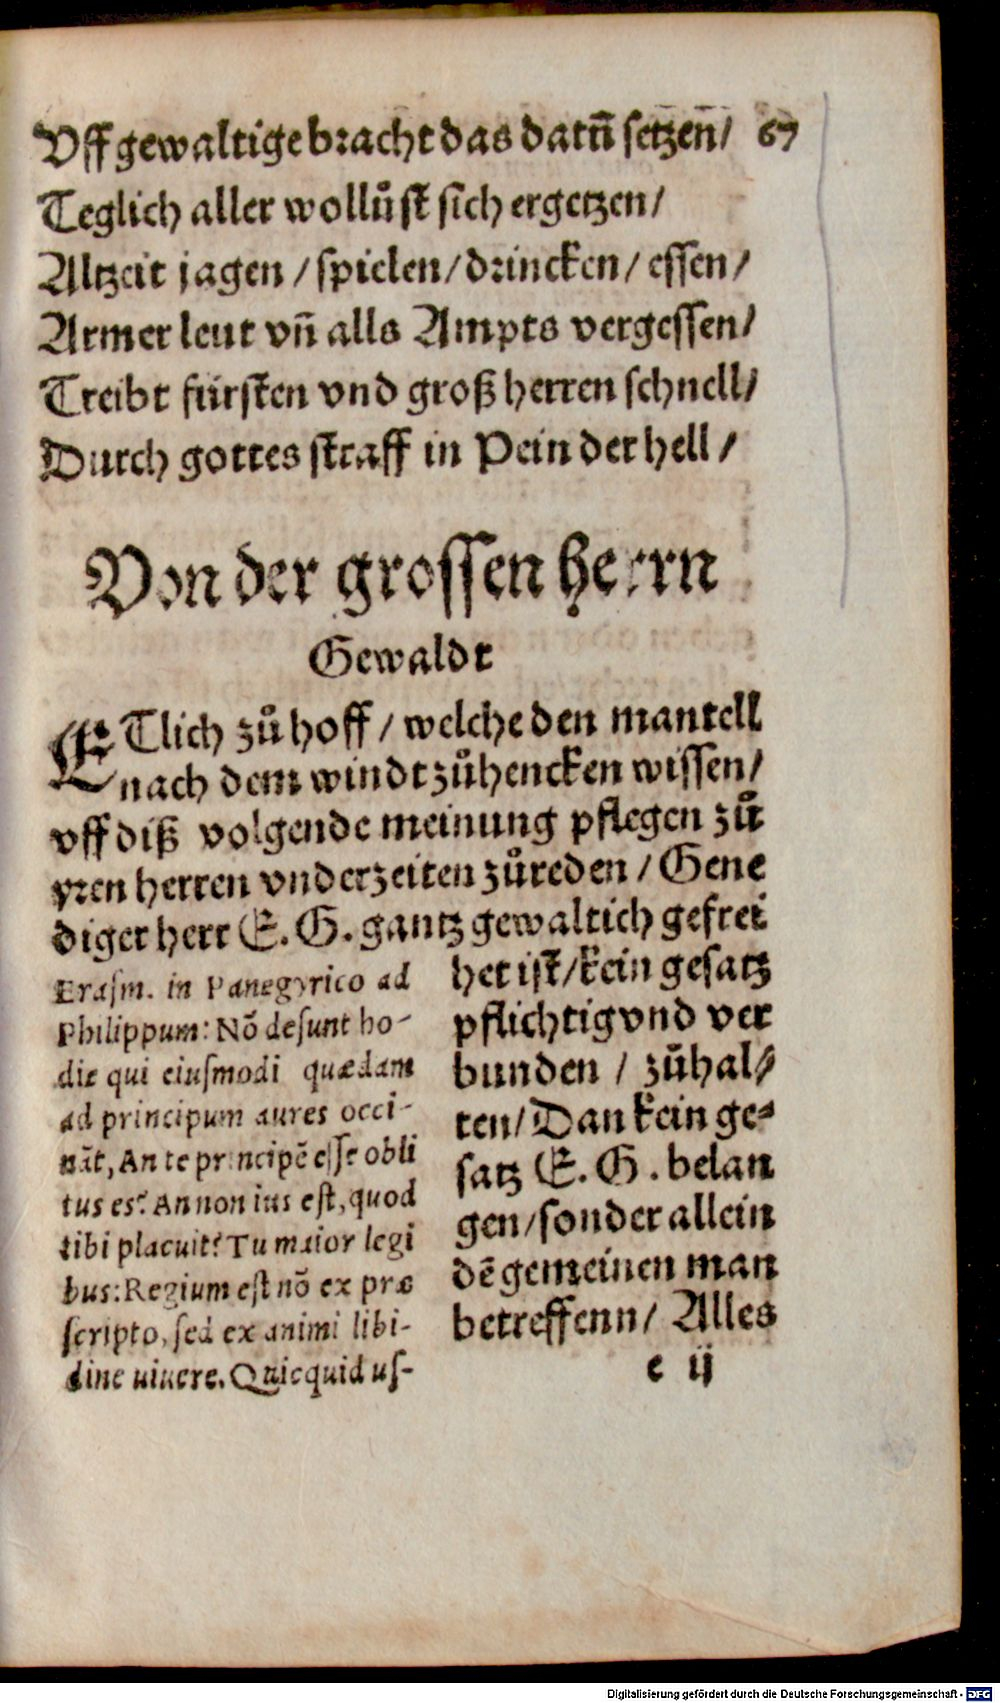 Vff gewaltige bracht das datñ setzen̄/ 67
Teglich aller wollůst sich ergetzen/
Altzeit jagen/spielen/drincken/essen/
Armer leut vn̄ alls Ampts vergessen/
Treibt fürsten vnd groß herren schnell/
Durch gottes straff in Pein der hell/
Von der grossen herrn
Gewaldt
ETlich zů hoff/welche den mantell
nach dem windt zůhencken wissen/
vff diß volgende meinung pflegen zů
yren herren vnderzeiten zůreden/Gene
diger herr E. G. gantz gewaltich gefrei
het ist/kein gesatz
pflichtig vnd ver
bunden / zůhal⸗
ten/Dan kein ge⸗
satz E. G. belan
gen/sonder allein
dē gemeinen man
betreffenn/ Alles
Erasm. in Panegyrico ad
Philippum: Nō desunt ho-
die qui eiusmodi quædam
ad principum aures occi-
nāt, An te principē esse obli
tus es? An non ius est, quod
tibi placuit? Tu maior legi
bus: Regium est nō ex præ
scripto, sed ex animi libi-
dine uiuere. Quicquid us-
e ij
Digitalisierung gefördert durch die Deutsche Forschungsgemeinschaft - DFG